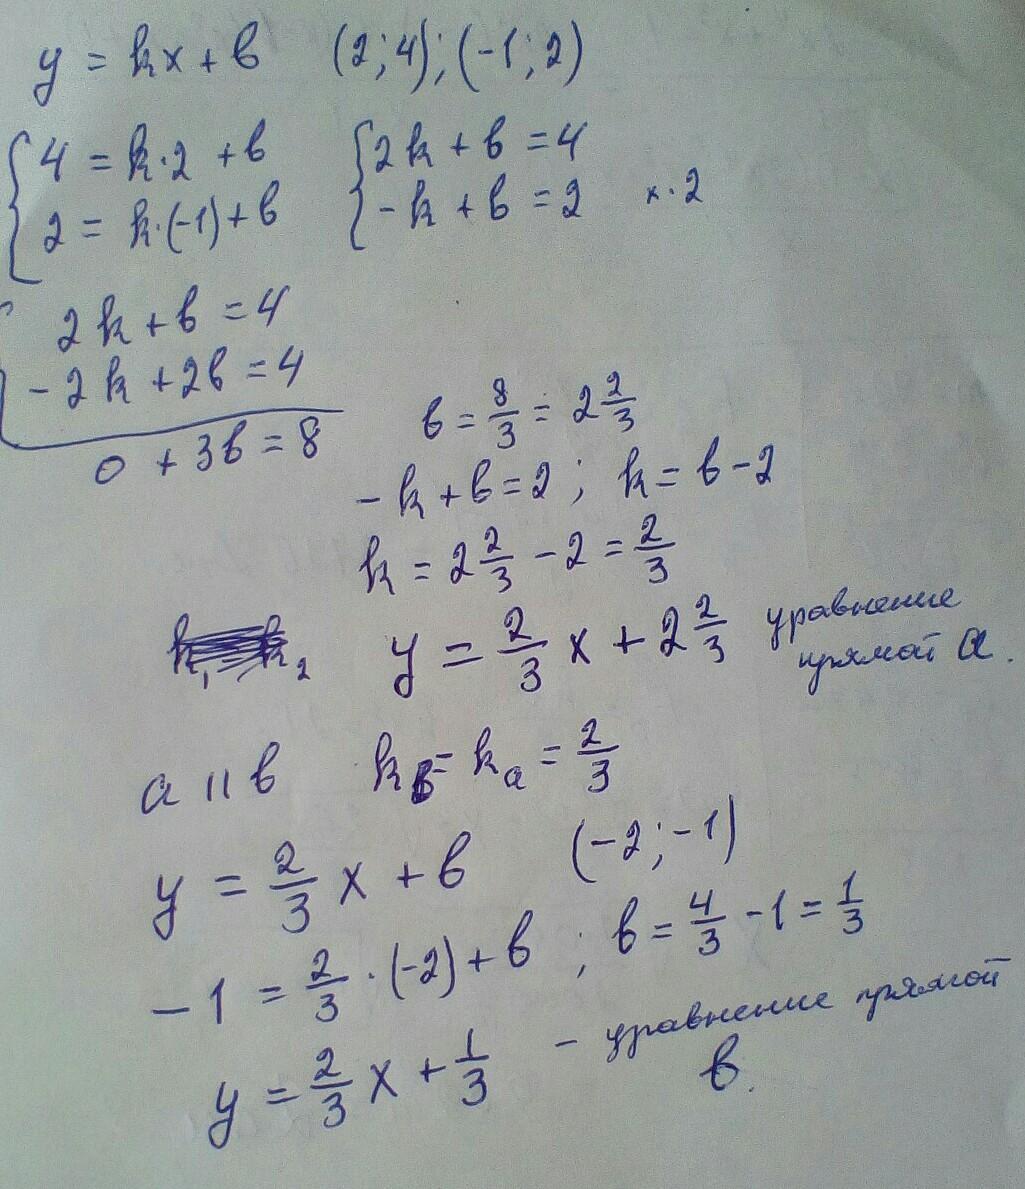 y = kx + в (2;4); (-1;2)
{4 = k·2 + в {2k + в = 4
{2 = k·(-1) + в {-k + в = 2 x·2
2k + в = 4
-2k + 2в = 4
0 + 3в = 8
в = 8/3 = 2 2/3
-k + в = 2 ; k = в - 2
k = 2 2/3 - 2 = 2/3
y = 2/3 x + 2 2/3 уравнение
прямой a.
a || в k в = k a = 2/3
y = 2/3 x + в (-2;-1)
-1 = 2/3 · (-2) + в ; в = 4/3 - 1 = 1/3
y = 2/3 x + 1/3 - уравнение прямой
в.